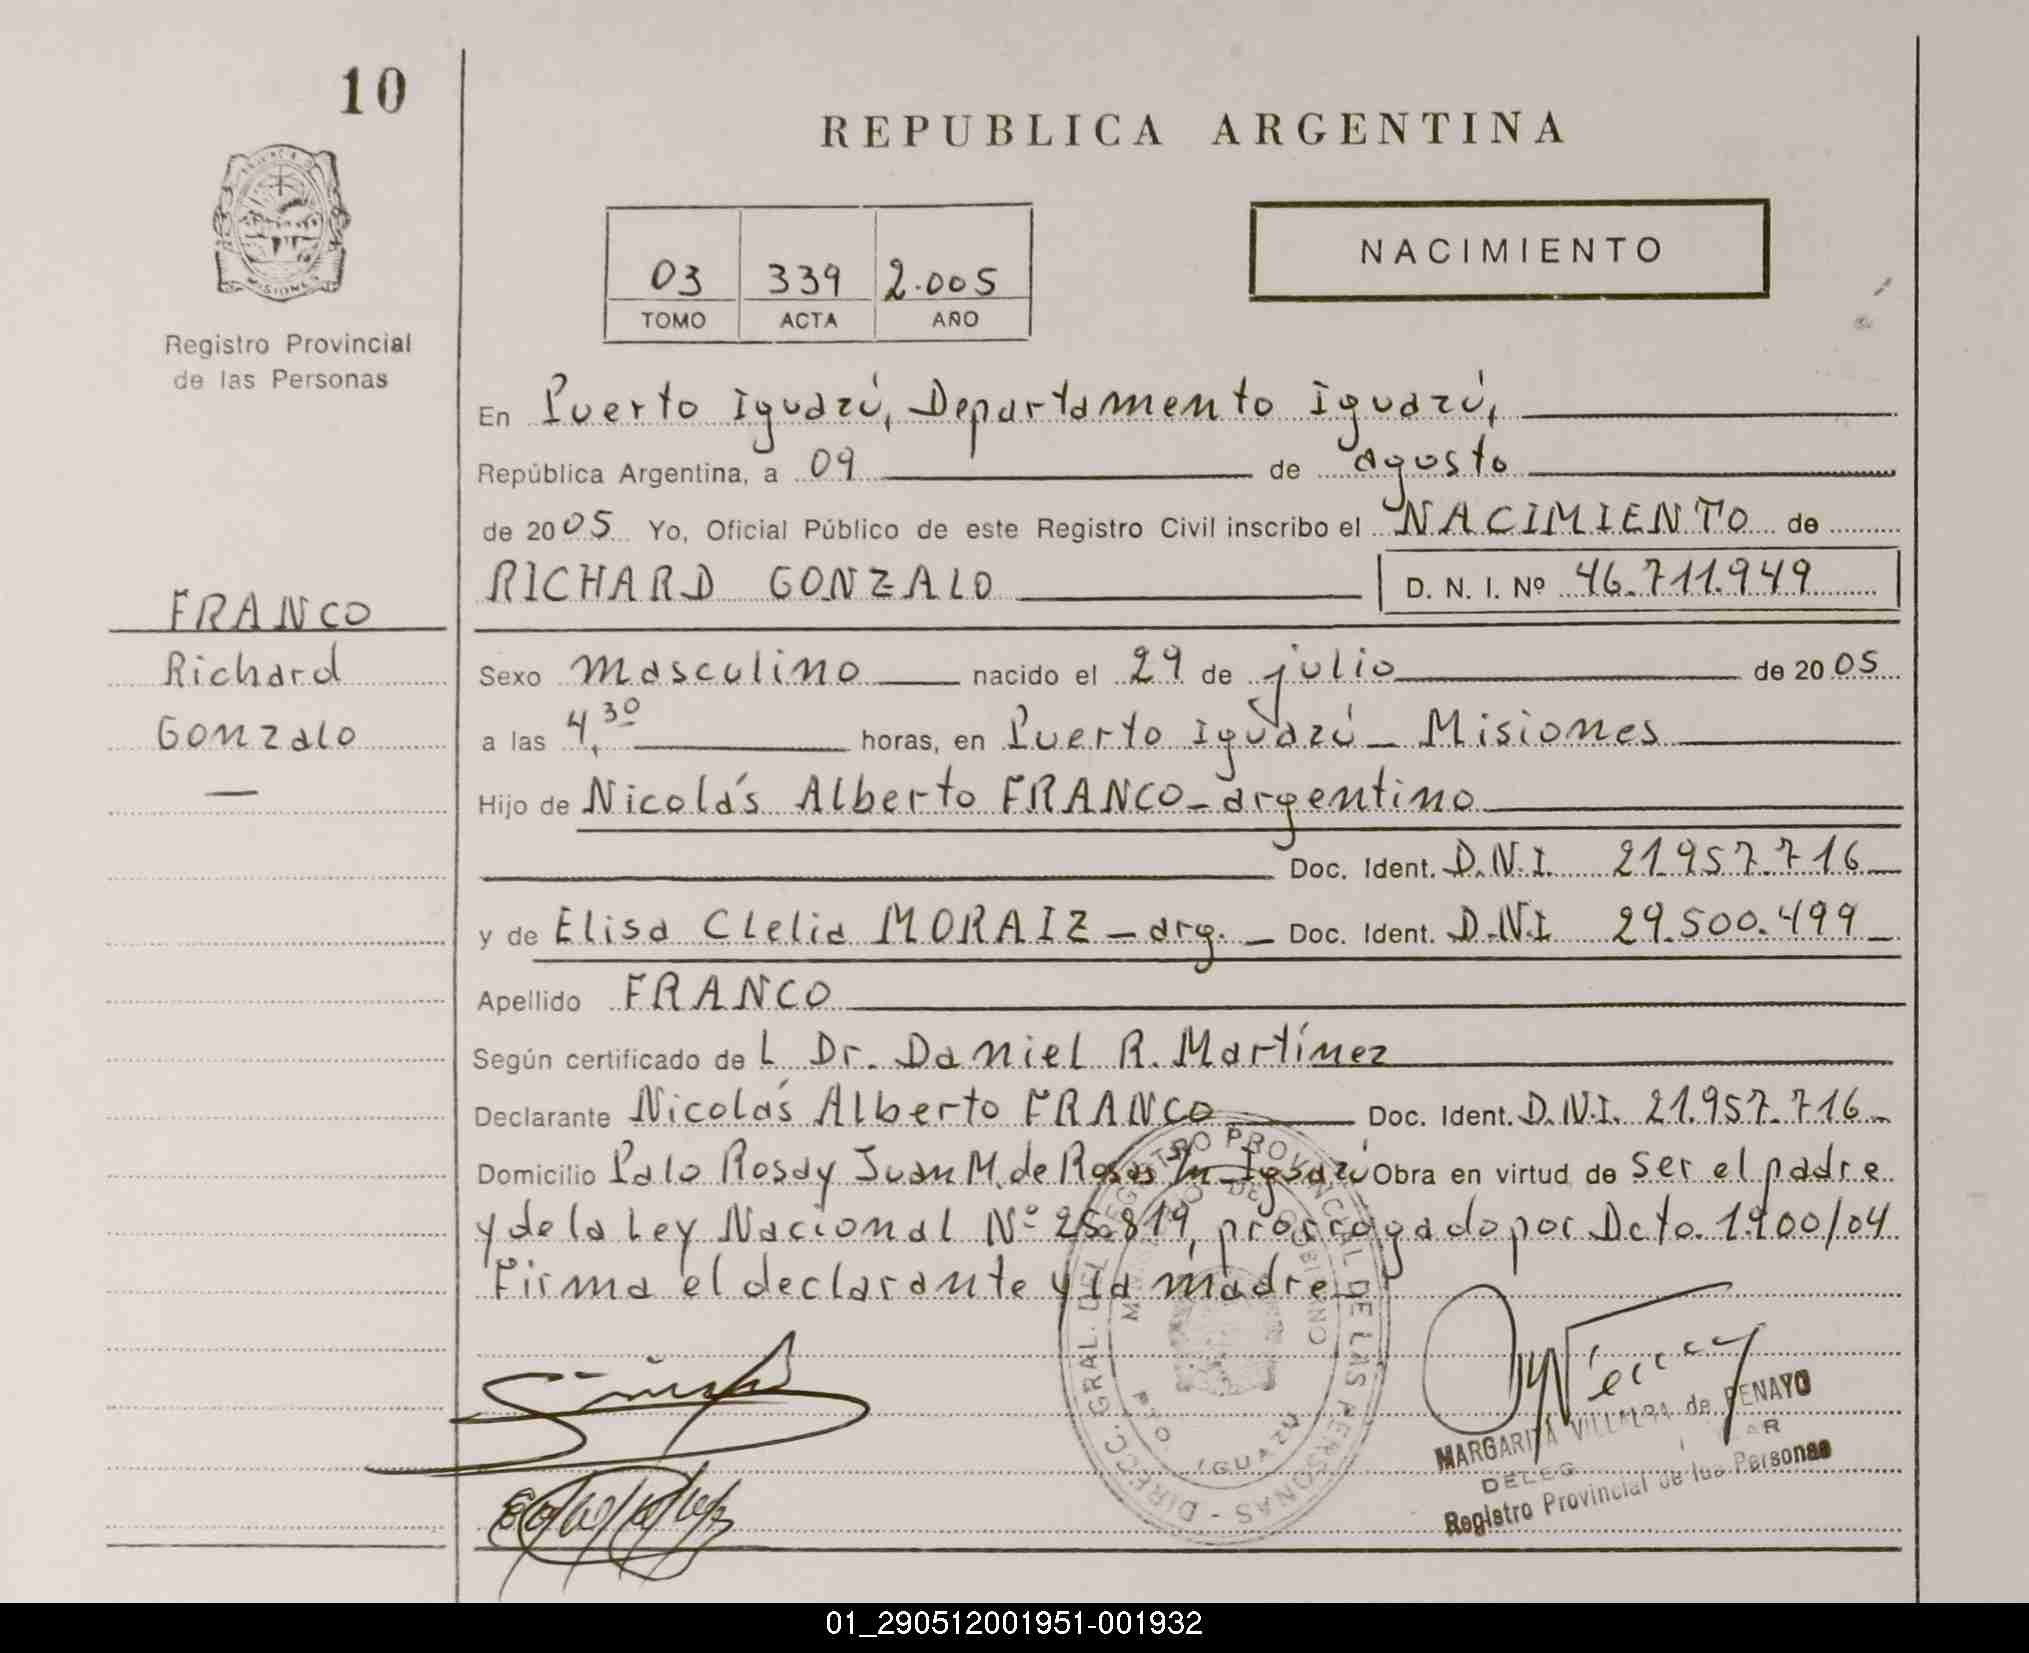 10
REPUBLICA ARGENTINA
NACIMIENTO
03 339 2.005
TOMO ACTA AÑO
Registro Provincial
de las Personas
En Puerto Iguazú, Departamento Iguazú,
República Argentina, a 09 de agosto
de 2005 Yo, Oficial Público de este Registro Civil inscribo el NACIMIENTO de
RICHARD GONZALO D. N. I. Nº 46.711.949
FRANCO
Richard
Gonzalo
Sexo masculino nacido el 29 de julio de 2005
a las 4,30 horas, en Puerto Iguazú - Misiones
Hijo de Nicolás Alberto FRANCO - argentino
Doc. Ident. D.N.I. 21.957.716
y de Elisa Clelia MORAIZ - arg. - Doc. Ident. D.N.I 29.500.499
Apellido FRANCO
Según certificado de L Dr. Daniel R. Martínez
Declarante Nicolás Alberto FRANCO Doc. Ident. D.N.I. 21.957.716
Domicilio Palo Rosa y Juan M. de Rosas Iguazú Obra en virtud de ser el padre
y de la Ley Nacional Nº 25.819, prorrogado por Dcto. 1.900/04
Firma el declarante y la madre
DIRECC. GRAL. DEL REGISTRO PROVINCIAL DE LAS PERSONAS
MINISTERIO DE GOBIERNO
PTO IGUAZU
MARGARITA VILLALBA de PENAYO
Registro Provincial de las Personas
01_290512001951-001932